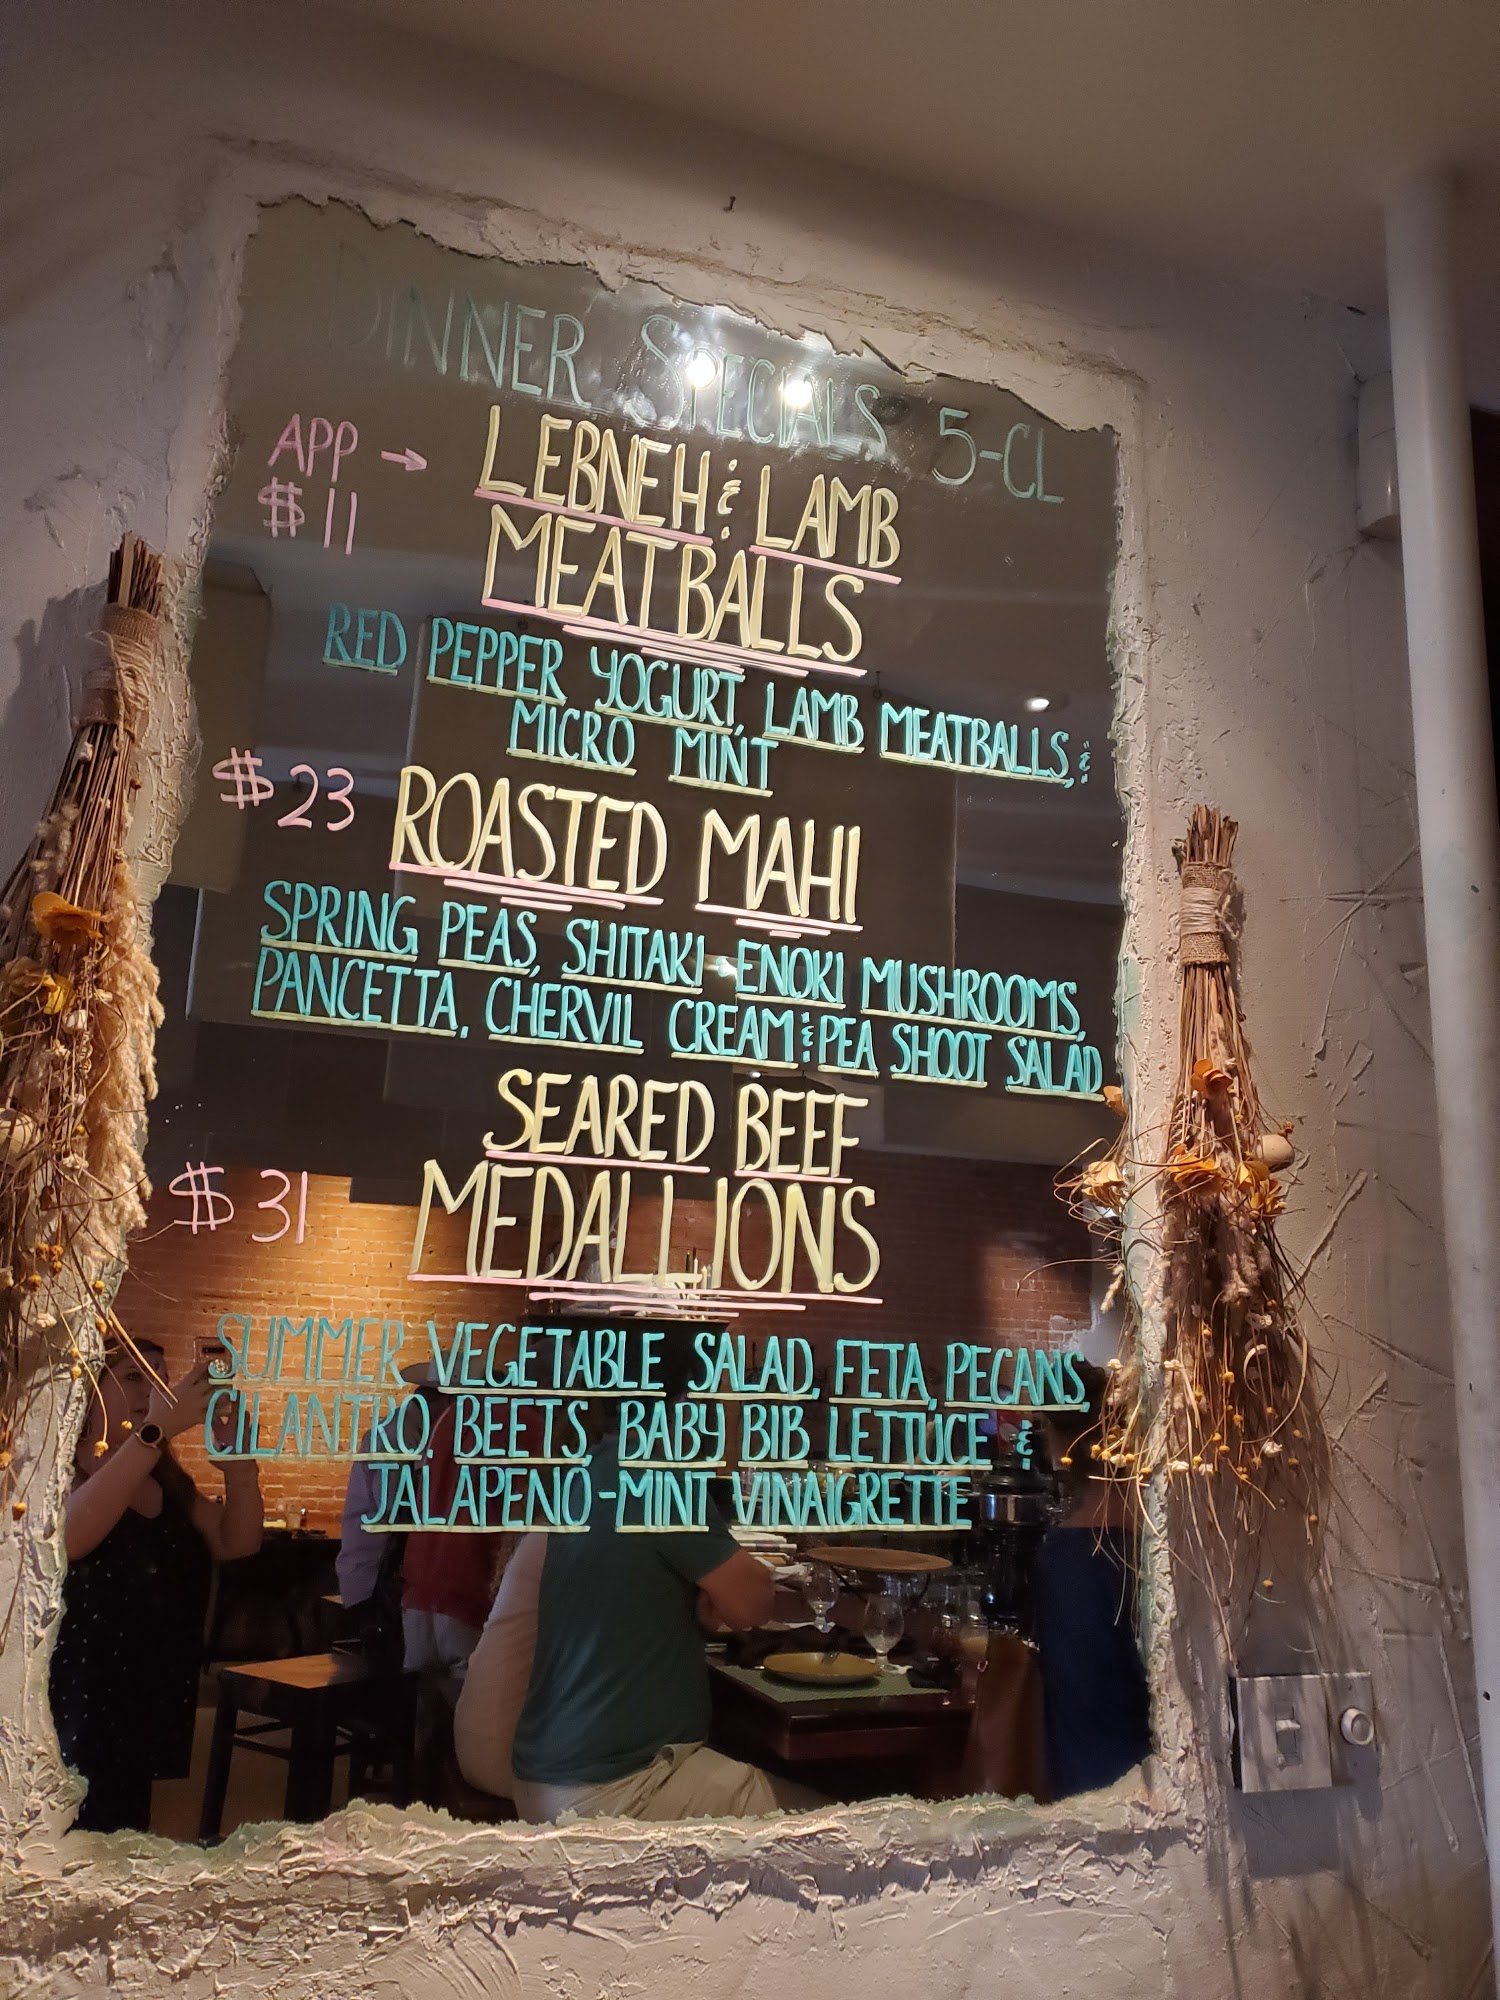 DINNER SPECIALS 5-CL
APP → LEBNEH & LAMB
$11 MEATBALLS
RED PEPPER YOGURT, LAMB MEATBALLS, &
MICRO MINT
$23 ROASTED MAHI
SPRING PEAS, SHITAKI & ENOKI MUSHROOMS,
PANCETTA, CHERVIL CREAM & PEA SHOOT SALAD
SEARED BEEF
$31 MEDALLIONS
SUMMER VEGETABLE SALAD, FETA, PECANS,
CILANTRO, BEETS, BABY BIB LETTUCE &
JALAPENO-MINT VINAIGRETTE